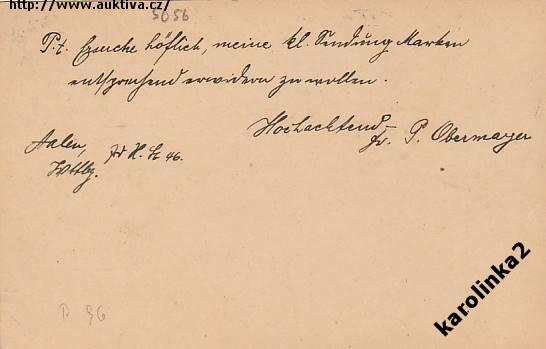 http://www.auktiva.cz/
5056
P.t. Ersuche höflich, meine kl. Sendung Marken
entsprechend erwidern zu wollen.
Hochachtend
P. Obermayer
Aalen,
Wttbg.
P 96
karolinka2